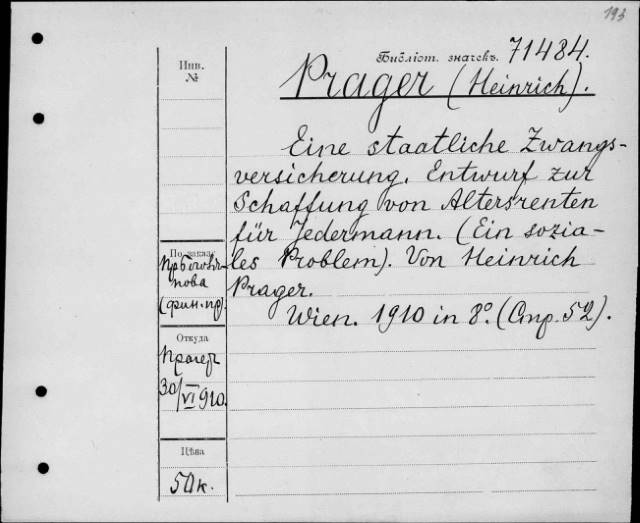 193
Библіот. значекъ. 71484.
Инв.
№
Prager (Heinrich).
Eine staatliche Zwangs-
versicherung. Entwurf zur
Schaffung von Altersrenten
für Jedermann. (Ein sozia-
les Problem). Von Heinrich
Prager.
Wien. 1910 in 8º. (Стр. 52).
По заказу
нова
(фин. пр).
Откуда
30/VI 910.
Цѣна
50 к.